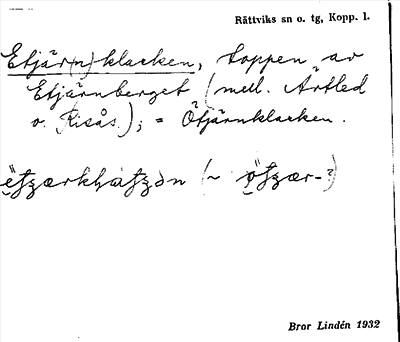 Rättviks sn o. tg, Kopp. l.
Etjär(n)klacken, toppen av
Etjärnberget (mell. Ärtled
o. Risås.); = Ötjärnklacken.
(~
Bror Lindén 1932